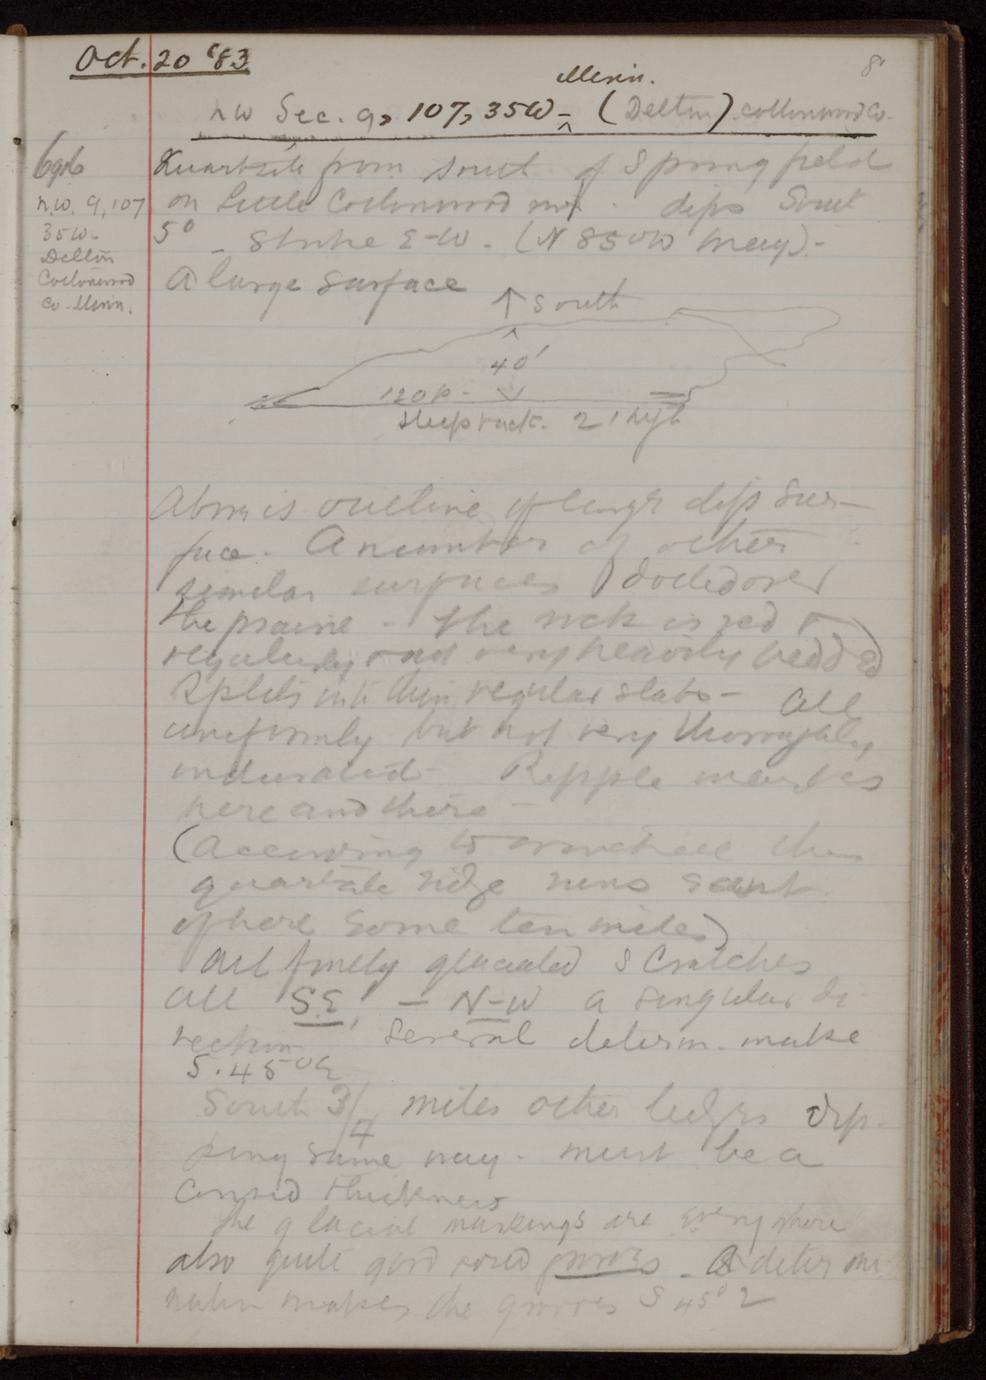 Oct. 20 '83
8
Minn.
NW Sec. 9, 107, 35W - (Delton) Cottonwood Co.
N.W. 9, 107
35W-
Delton
Cottonwood
Co. Minn.
Quartzite from south of Springfield
on Little Cottonwood dips South
5° - Strike E-W. (N 85° W Mag).-
A large surface
↑ South
40'
120 p.
Sheep rock. 2' high
Above is outline of large dip sur-
face. A number of other
similar surfaces dotted over
the prairie - The rock is red
regularly and very heavily bedded
Splits into thin regular slabs - All
uniformly but not very thoroughly
indurated - Ripple marks
here and there -
(According to this
quartzite ridge runs
of here some ten miles)
All finely glaciated Scratches
all SE, - N-W a singular di-
rection several determ. make
S. 45° E
South 3/4 miles other ledges dip-
ping same way. must be a
Consid thickness
The glacial markings are everywhere
also quite good sized grooves - A determi-
nation makes the grooves S 45° E